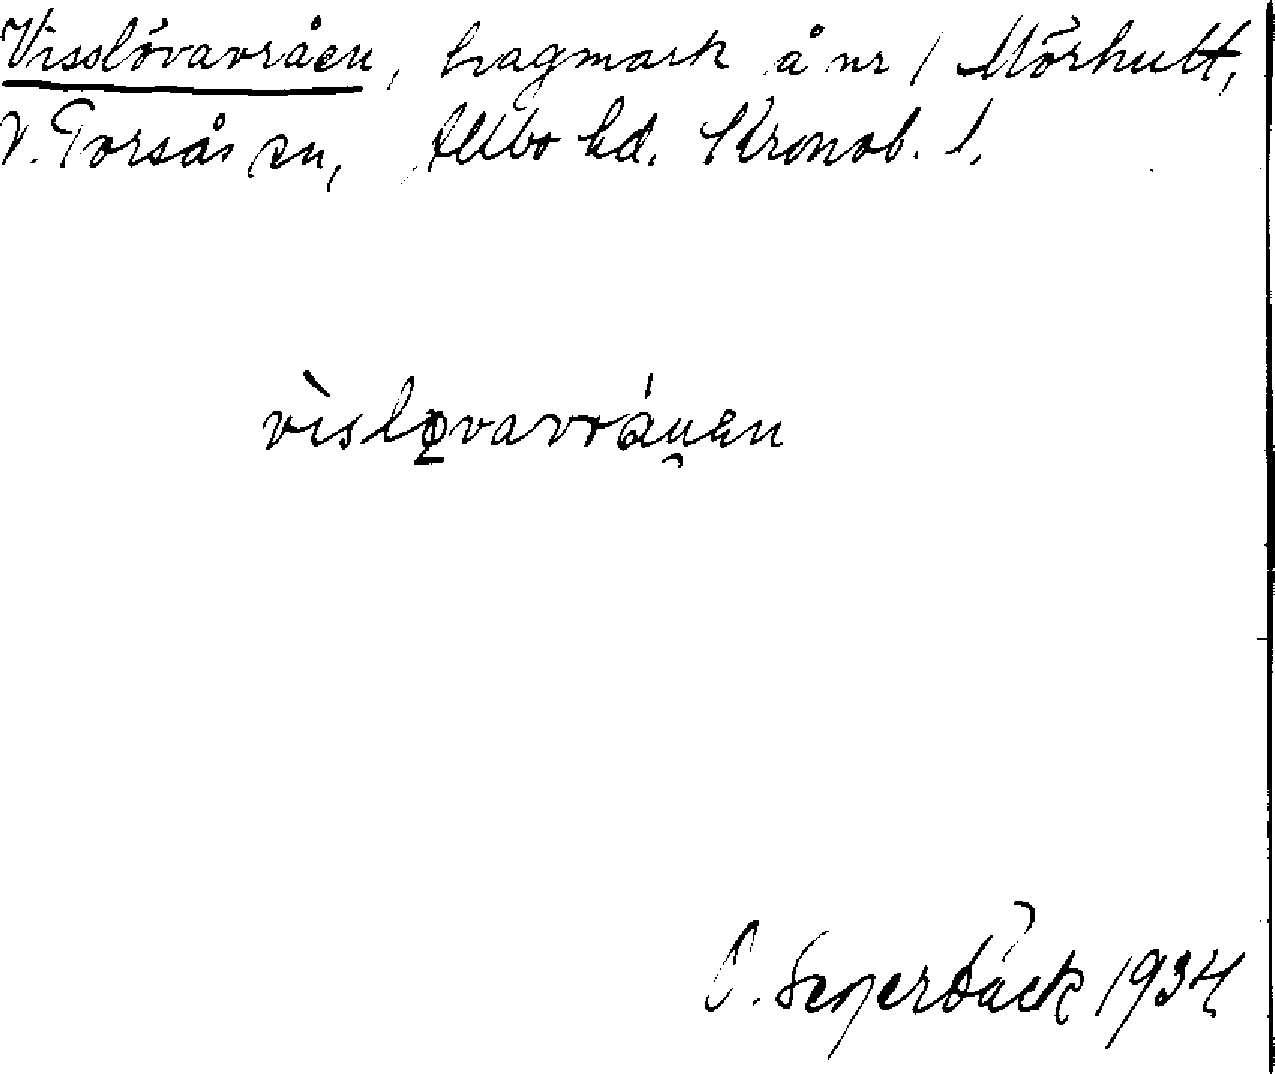 Visslövavråen, hagmark å nr 1 Mörhult,
V. Torsås sn, Allbo hd. Kronob. l.
vìslo̱vavráu̯en
O. Segerbäck 1934